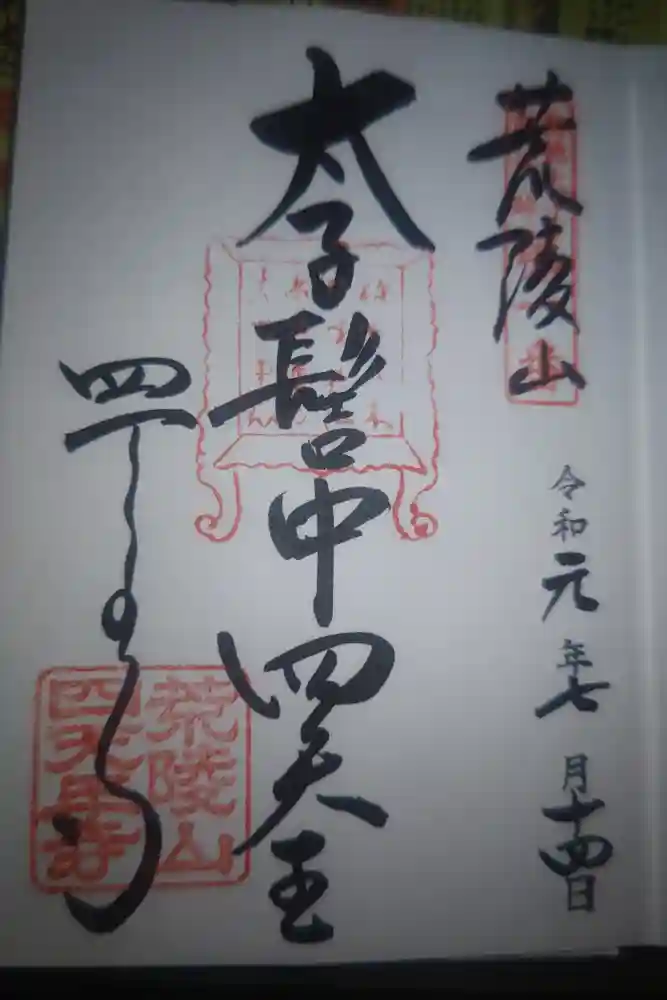 荒陵山
令和元年七月十四日
太子髻中四天王
四天王寺
荒陵山
四天王寺